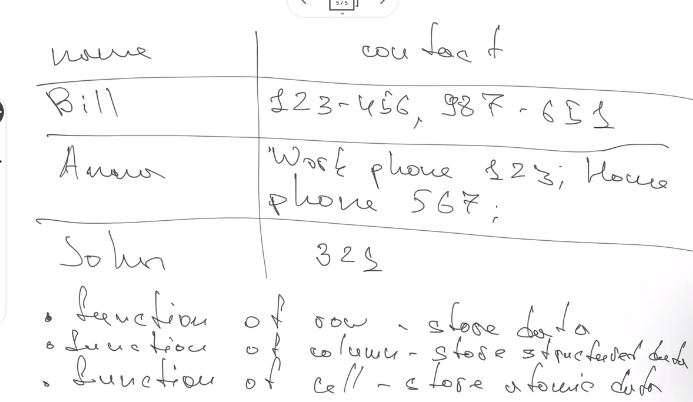 5/5
name contact
Bill 123-456, 987-651
Anna Work phone 123; Home
phone 567;
John 321
• function of row - store data
• function of column - store structured data
• function of cell - store atomic data